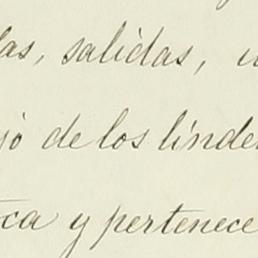 las, salidas, u
jo de los linde
oca y pertenece